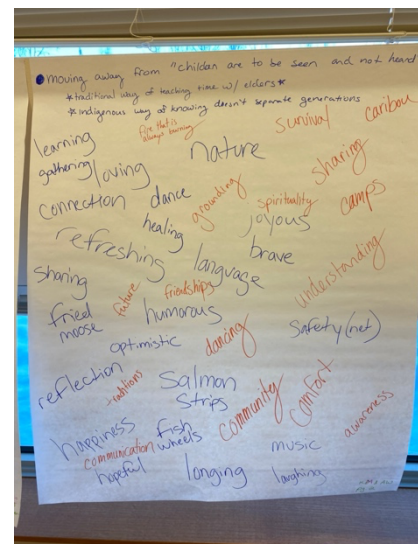 moving away from "childan are to be seen and not heard
*traditional way of teaching time w/ elders*
*indigenous way of knowing doesn't separate generations
Fire that is
always burning
survival
caribou
learning
gathering
loving
nature
sharing
connection
dance
grounding
spirituality
camps
healing
joyous
refreshing
brave
language
understanding
sharing
future
friendships
fried
moose
humorous
Safety (net)
optimistic
dancing
reflection
Salmon
Strips
community
comfort
awareness
happiness
fish
wheels
communication
music
hopeful
longing
laughing